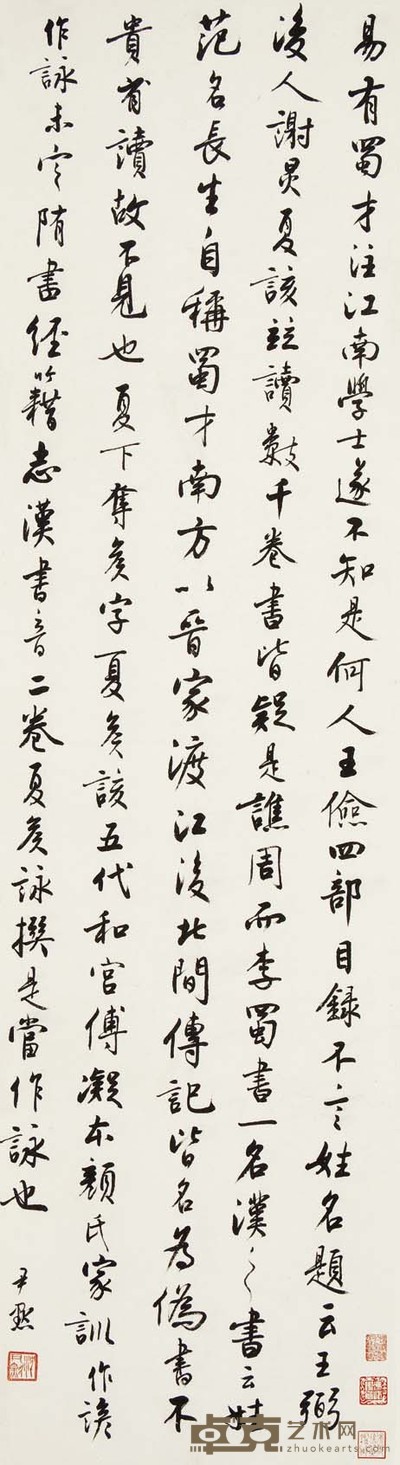 易有蜀才注江南學士遂不知是何人王儉四部目錄不言姓名題云王弼
後人謝炅夏該並讀數千卷書皆疑是譙周而李蜀書一名漢之書云姓
范名長生自稱蜀才南方以晉家渡江後北間傳記皆名為偽書不
貴省讀故不見也夏下奪矦字夏矦該五代和宮傅凝本顏氏家訓作諺
作詠未定隋書經籍志漢書音二卷夏矦詠撰是當作詠也
尹默
卓克艺术网
zhuokearts.com